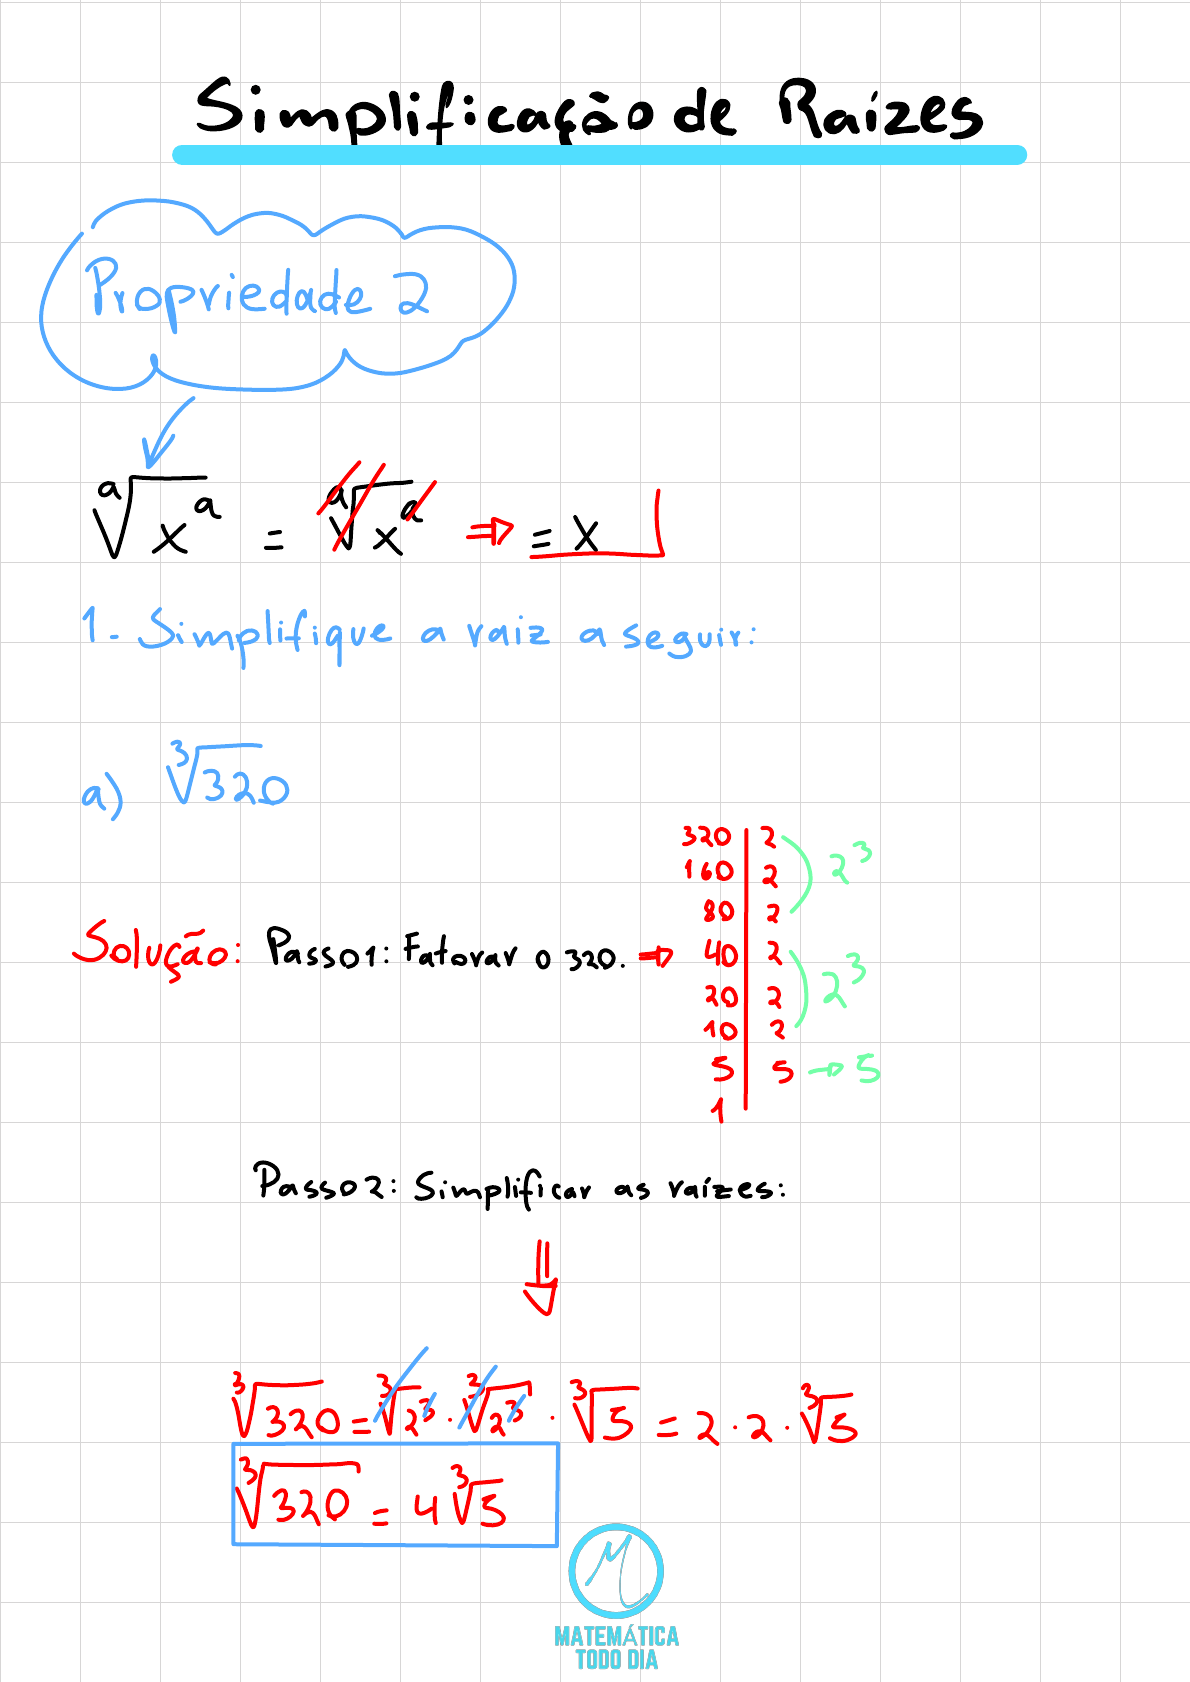 Simplificação de Raízes
Propriedade 2
ᵃ√xᵃ = ᵃ√xᵃ ⇒ = x
1- Simplifique a raiz a seguir:
a) ³√320
320 | 2
160 | 2 ) 2³
80 | 2
Solução: Passo 1: Fatorar o 320. ⇒ 40 | 2
20 | 2 ) 2³
10 | 2
5 | 5 → 5
1
Passo 2: Simplificar as raízes:
³√320 = ³√2³ · ³√2³ · ³√5 = 2 · 2 · ³√5
³√320 = 4 ³√5
M
MATEMÁTICA
TODO DIA